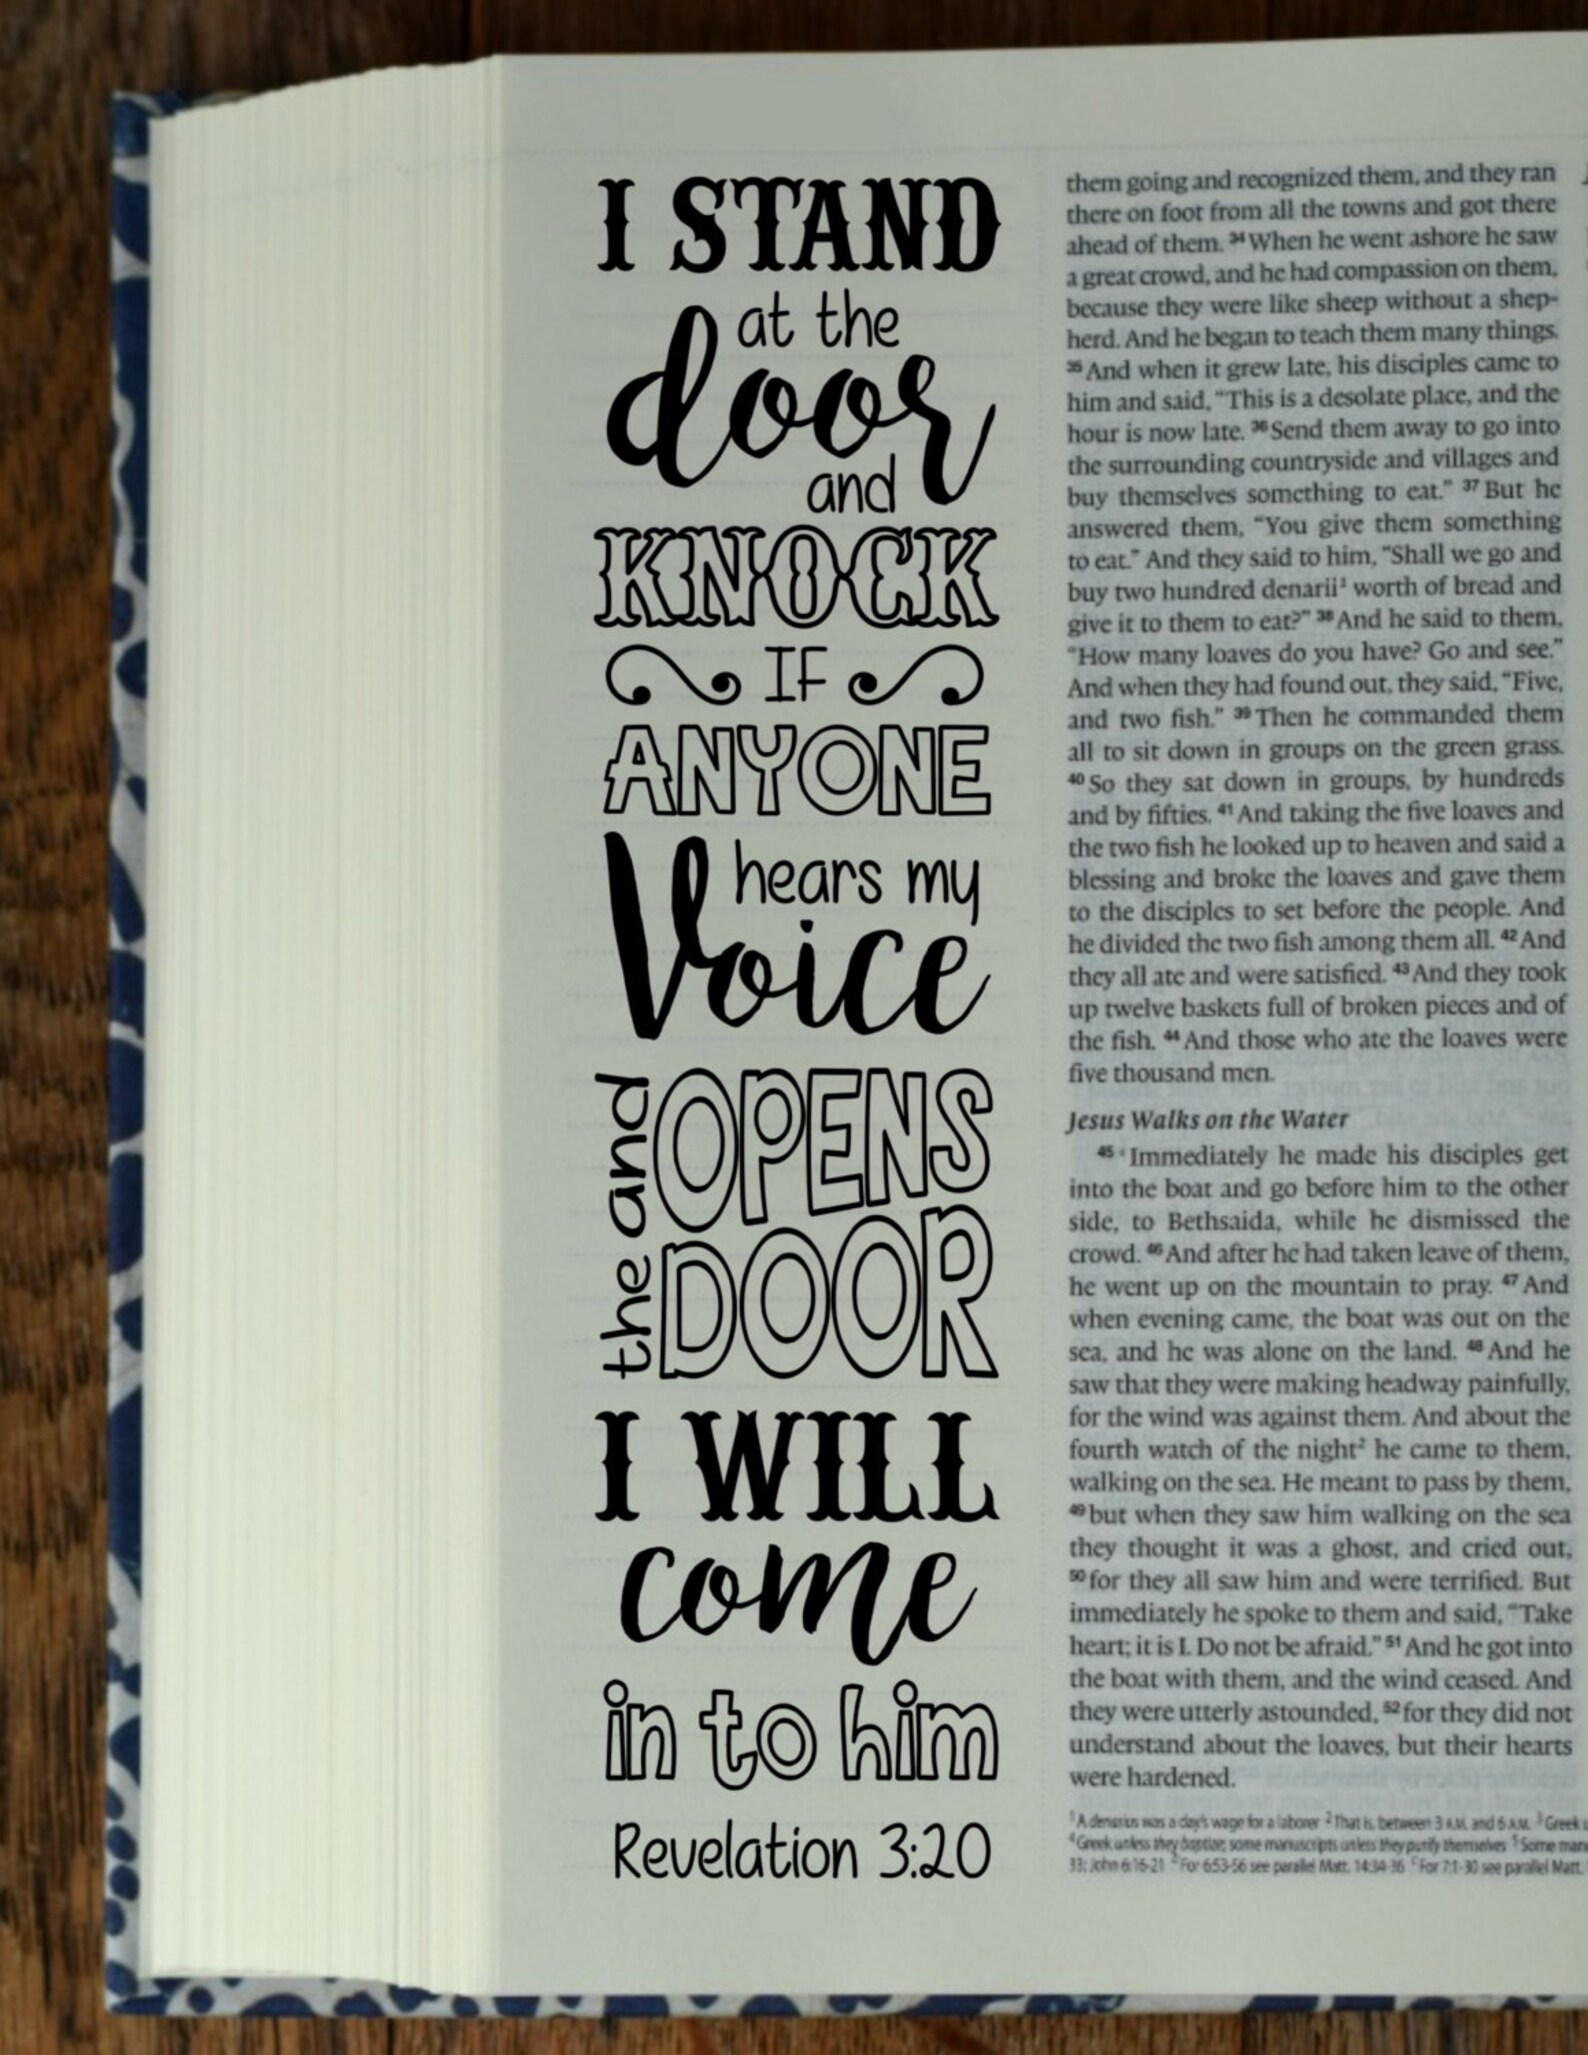 I STAND
at the
door
and
KNOCK
IF
ANYONE
hears my
Voice
and OPENS
the DOOR
I WILL
come
in to him
Revelation 3:20
them going and recognized them, and they ran
there on foot from all the towns and got there
ahead of them. ³⁴When he went ashore he saw
a great crowd, and he had compassion on them,
because they were like sheep without a shep-
herd. And he began to teach them many things.
³⁵And when it grew late, his disciples came to
him and said, “This is a desolate place, and the
hour is now late. ³⁶Send them away to go into
the surrounding countryside and villages and
buy themselves something to eat.” ³⁷But he
answered them, “You give them something
to eat.” And they said to him, “Shall we go and
buy two hundred denarii¹ worth of bread and
give it to them to eat?” ³⁸And he said to them,
“How many loaves do you have? Go and see.”
And when they had found out, they said, “Five,
and two fish.” ³⁹Then he commanded them
all to sit down in groups on the green grass.
⁴⁰So they sat down in groups, by hundreds
and by fifties. ⁴¹And taking the five loaves and
the two fish he looked up to heaven and said a
blessing and broke the loaves and gave them
to the disciples to set before the people. And
he divided the two fish among them all. ⁴²And
they all ate and were satisfied. ⁴³And they took
up twelve baskets full of broken pieces and of
the fish. ⁴⁴And those who ate the loaves were
five thousand men.
Jesus Walks on the Water
⁴⁵Immediately he made his disciples get
into the boat and go before him to the other
side, to Bethsaida, while he dismissed the
crowd. ⁴⁶And after he had taken leave of them,
he went up on the mountain to pray. ⁴⁷And
when evening came, the boat was out on the
sea, and he was alone on the land. ⁴⁸And he
saw that they were making headway painfully,
for the wind was against them. And about the
fourth watch of the night² he came to them,
walking on the sea. He meant to pass by them,
⁴⁹but when they saw him walking on the sea
they thought it was a ghost, and cried out,
⁵⁰for they all saw him and were terrified. But
immediately he spoke to them and said, “Take
heart; it is I. Do not be afraid.” ⁵¹And he got into
the boat with them, and the wind ceased. And
they were utterly astounded, ⁵²for they did not
understand about the loaves, but their hearts
were hardened.
¹A denarius was a day's wage for a laborer ²That is, between 3 A.M. and 6 A.M. ³Greek
⁴Greek unless they baptize; some manuscripts unless they purify themselves ⁵Some
33; John 6:16-21 For 6:53-56 see parallel Matt. 14:34-36 For 7:1-30 see parallel Matt.